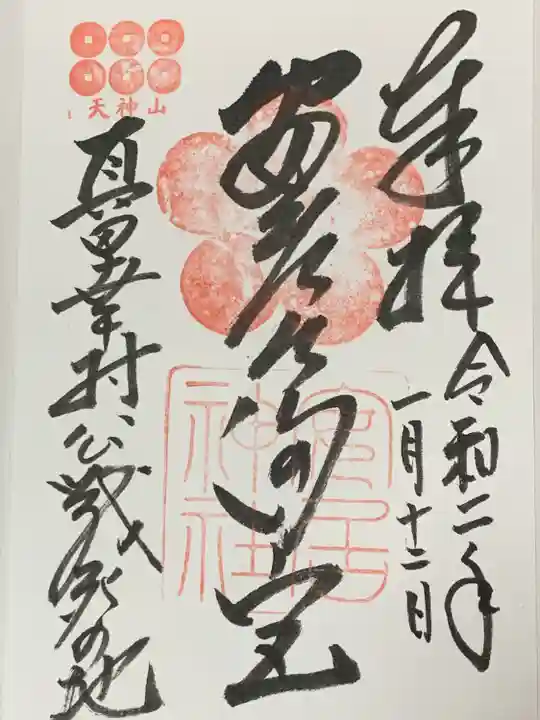 奉拝
令和二年
一月十二日
安居
神社
天神山
真田幸村公戦死の地